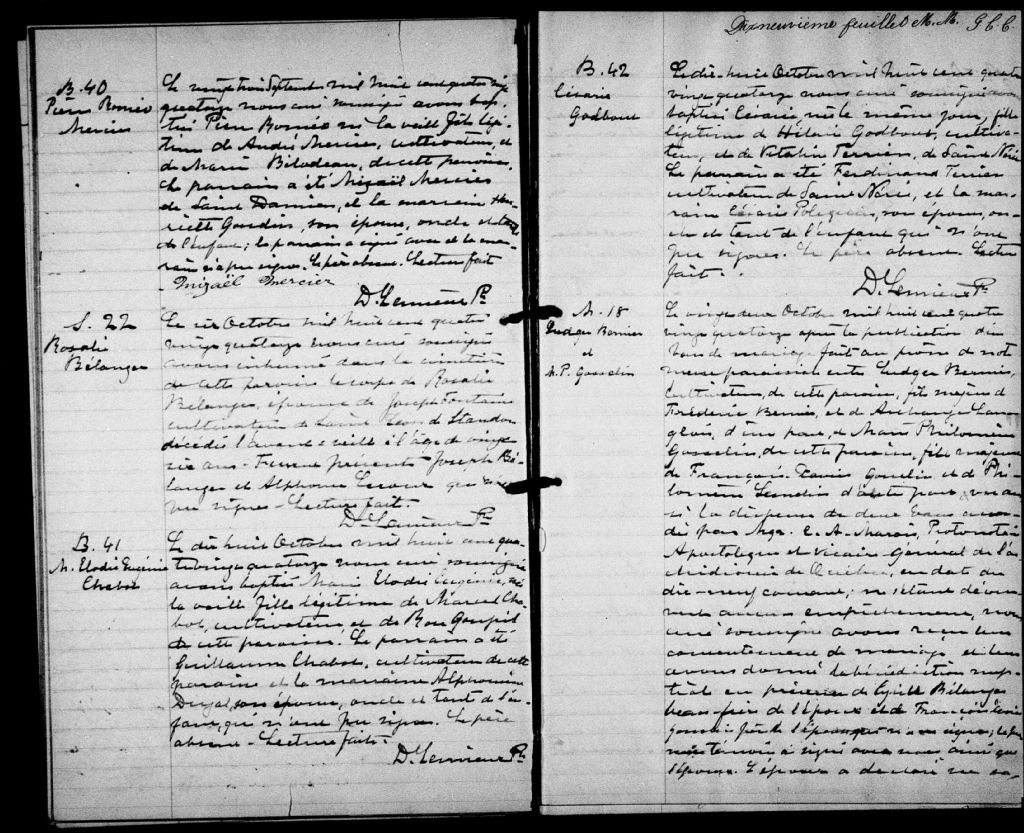 B. 40
Pierre Roméo
Mercier
Le vingt trois Septembre mil huit cent quatre vingt
quatorze nous curé soussigné avons bap-
tisé Pierre Roméo né la veille fils légi-
time de André Mercier, cultivateur, et
de Marie Bilodeau, de cette paroisse.
Le parrain a été Mizaël Mercier
de Saint Damien, et la marraine Hen-
riette Goudin, son épouse, oncle et tante
de l'enfant; le parrain a signé avec et la mar-
raine n'a pu signer. Le père absent. Lecture faite
Mizaël Mercier
D. Lemieux Ptre
S. 22
Rosalie
Bélanger
Le six Octobre mil huit cent quatre
vingt quatorze nous curé soussigné
avons inhumé dans le cimetière
de cette paroisse le corps de Rosalie
Bélanger, épouse de Joseph Fontaine
cultivateur de Saint Léon de Standon
décédée l'avant veille à l'âge de vingt
six ans. Furent présents Joseph Bé-
langer et Alphonse qui
pu signer. Lecture faite.
D. Lemieux Ptre
B. 41
M. Elodie Eugénie
Chabot
Le dix huit Octobre mil huit cent qua-
trevingt quatorze nous curé soussigné
avons baptisé Marie Elodie Eugénie, née
la veille fille légitime de Marcel Cha-
bot, cultivateur et de Rose Goupil
de cette paroisse. Le parrain a été
Guillaume Chabot, cultivateur de cette
paroisse et la marraine Alphonsine
son épouse, oncle et tante de l'en-
fant, qui n'ont pu signer. Le père
absent. Lecture faite.
D. Lemieux Ptre
Dixneuvième feuillet M. M. G C. C.
B. 42
Césarie
Godbout
Le dix-huit Octobre mil huit cent quatre
vingt quatorze nous curé soussigné avons
baptisé Césarie, née le même jour, fille
légitime de Hilaire Godbout, cultiva-
teur, et de Vitaline Terrien, de Saint Nérée
Le parrain a été Ferdinand Terrien
cultivateur de Saint Nérée, et la mar-
raine Césarie son épouse, on-
cle et tante de l'enfant qui n'ont
pu signer. Le père absent. Lecture
faite.
D. Lemieux Ptre
M. 18
Ludger Bernier
et
M. P. Gosselin
Le vingt deux Octobre mil huit cent quatre
vingt quatorze après la publication de
bans de mariage faite au prône de notre
messe paroissiale entre Ludger Bernier,
cultivateur, de cette paroisse, fils majeur de
Frédéric Bernier, et de Archange Lan-
glois, d'une part, et Marie Philomène
Gosselin, de cette paroisse, fille majeure
de François Xavier Gosselin et de Phi-
lomène d'autre part; vu aus-
si la dispense de deux bans accor-
dée par Mgr. C. A. Marois, Protonotaire
Apostolique et Vicaire Général de l'ar-
chidiocèse de Québec, en date du
dix-neuf courant; ne s'étant décou-
vert aucun empêchement, nous
curé soussigné avons reçu leur
consentement de mariage et leur
avons donné la bénédiction nup-
tiale en présence de Cyrille Bélanger
beau-frère de l'époux et de François Xavier
Gosselin père de l'épouse qui n'a su signer; le
témoin a signé avec nous ainsi que
l'épouse. L'époux a déclaré ne sa-